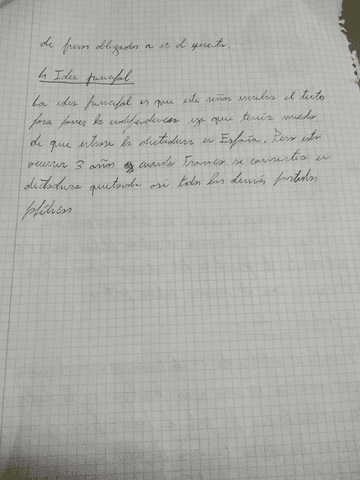 de presos obligados a ir al ejercito.
4 Idea principal
La idea principal es que este señor escribe el texto
para poner la ya que tenía miedo
de que entrase la dictadura en España. Pero esto
ocurrio 3 años cuando Franco se convertia en
dictadura quitando asi todos los demás partidos
políticos